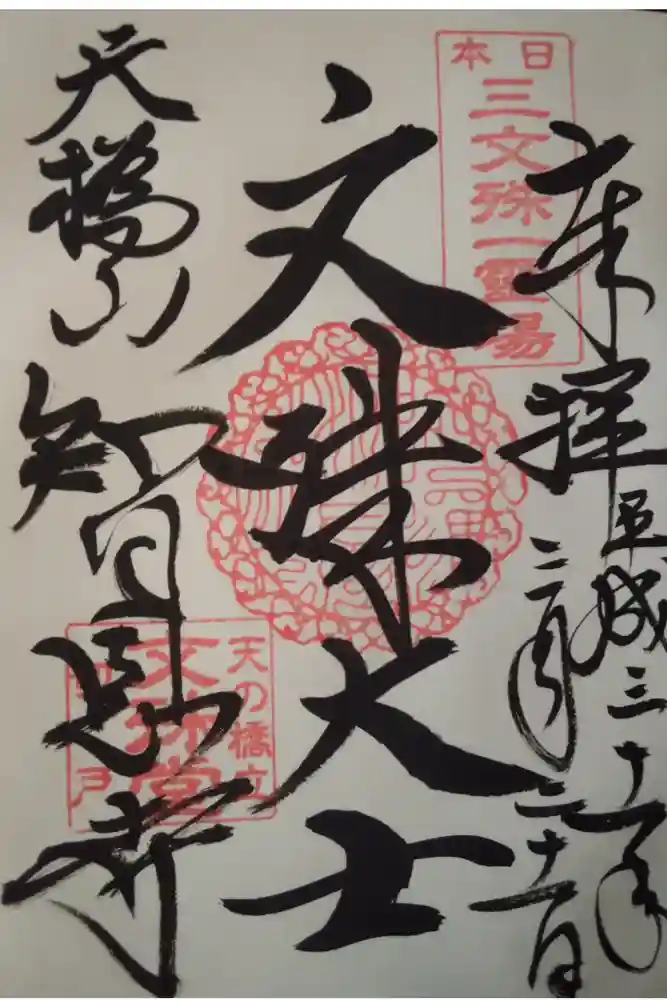 奉拝
平成三十一年
二月二十一日
日本
三文殊一霊場
文殊大士
天橋山
智恩寺
天の橋立
文殊堂